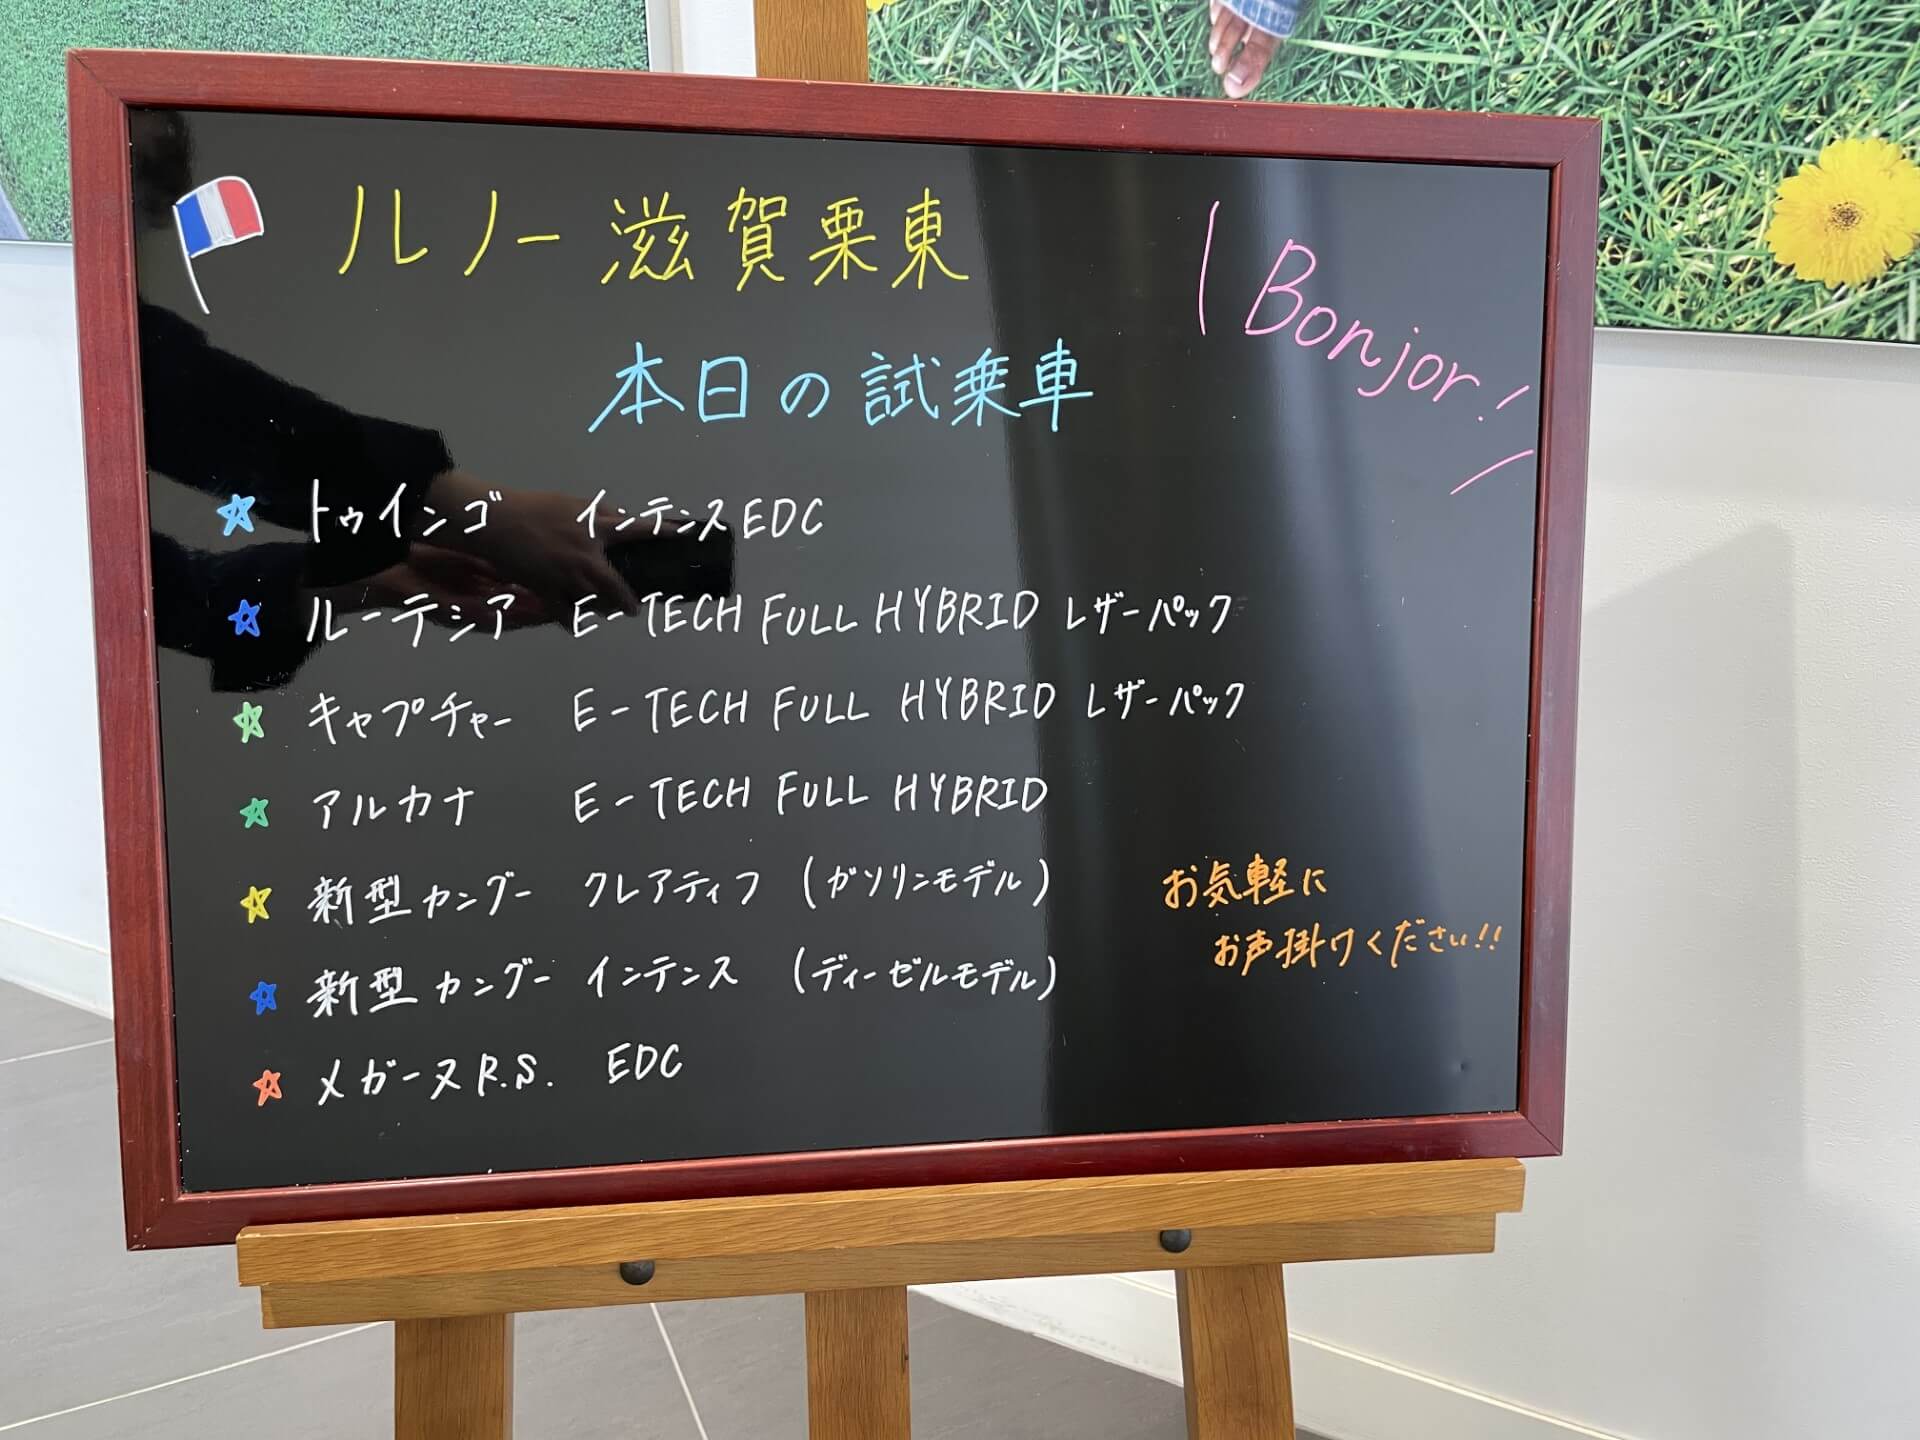 ルノー滋賀栗東
Bonjor!
本日の試乗車
トゥインゴ インテンスEDC
ルーテシア E-TECH FULL HYBRID レザーパック
キャプチャー E-TECH FULL HYBRID レザーパック
アルカナ E-TECH FULL HYBRID
新型カングー クレアティフ (ガソリンモデル)
新型カングー インテンス (ディーゼルモデル)
メガーヌ R.S. EDC
お気軽に
お声掛けください!!